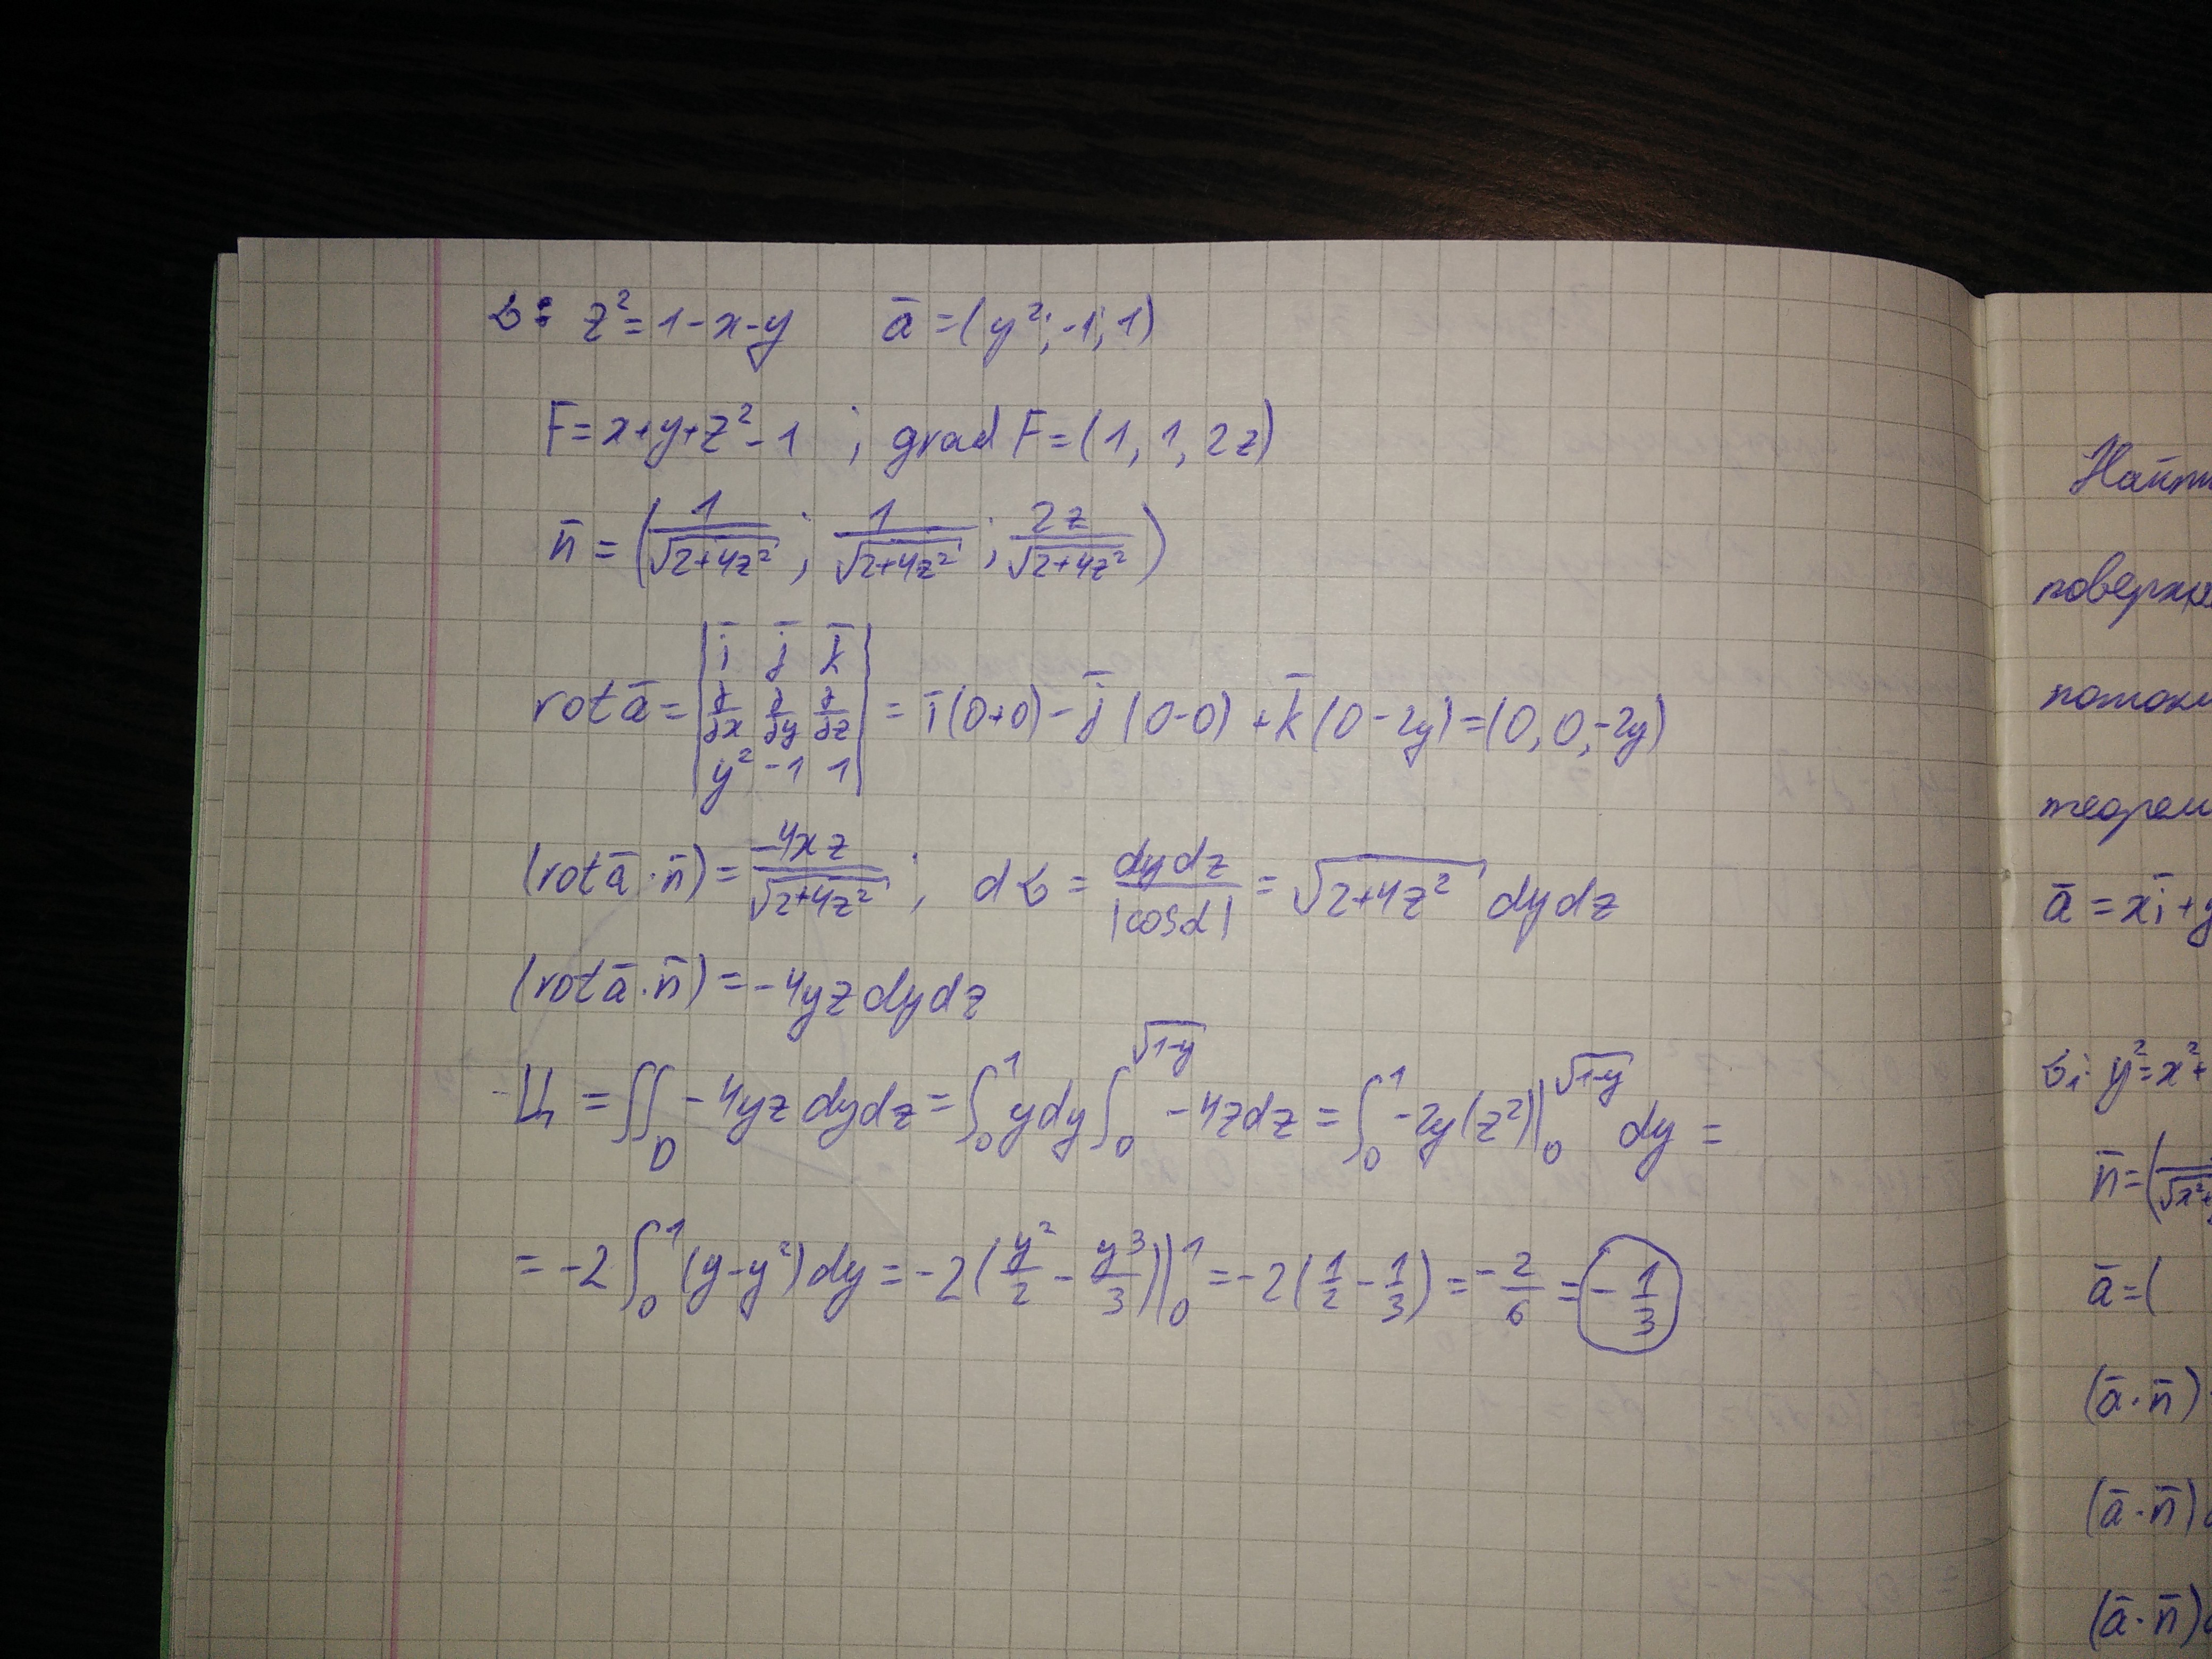 σ: z² = 1 - x - y   ā = (y²; -1; 1)
F = x + y + z² - 1 ; grad F = (1, 1, 2z)
n̄ = (1/√(2+4z²) ; 1/√(2+4z²) ; 2z/√(2+4z²))
rot ā = | ī j̄ k̄ ; ∂/∂x ∂/∂y ∂/∂z ; y² -1 1 | = ī(0+0) - j̄(0-0) + k̄(0-2y) = (0, 0, -2y)
(rot ā · n̄) = -4xz/√(2+4z²) ; dσ = dydz/|cosα| = √(2+4z²) dydz
(rot ā · n̄) = -4yz dydz
Ц = ∬_D -4yz dydz = ∫₀¹ y dy ∫₀^√(1-y) -4z dz = ∫₀¹ -2y(z²)|₀^√(1-y) dy =
= -2 ∫₀¹ (y - y²) dy = -2(y²/2 - y³/3)|₀¹ = -2(1/2 - 1/3) = -2/6 = -1/3
ā = xī + y
σ₁: y² = x² +
n̄ = (
ā = (
(ā · n̄)
(ā · n̄)
(ā · n̄)